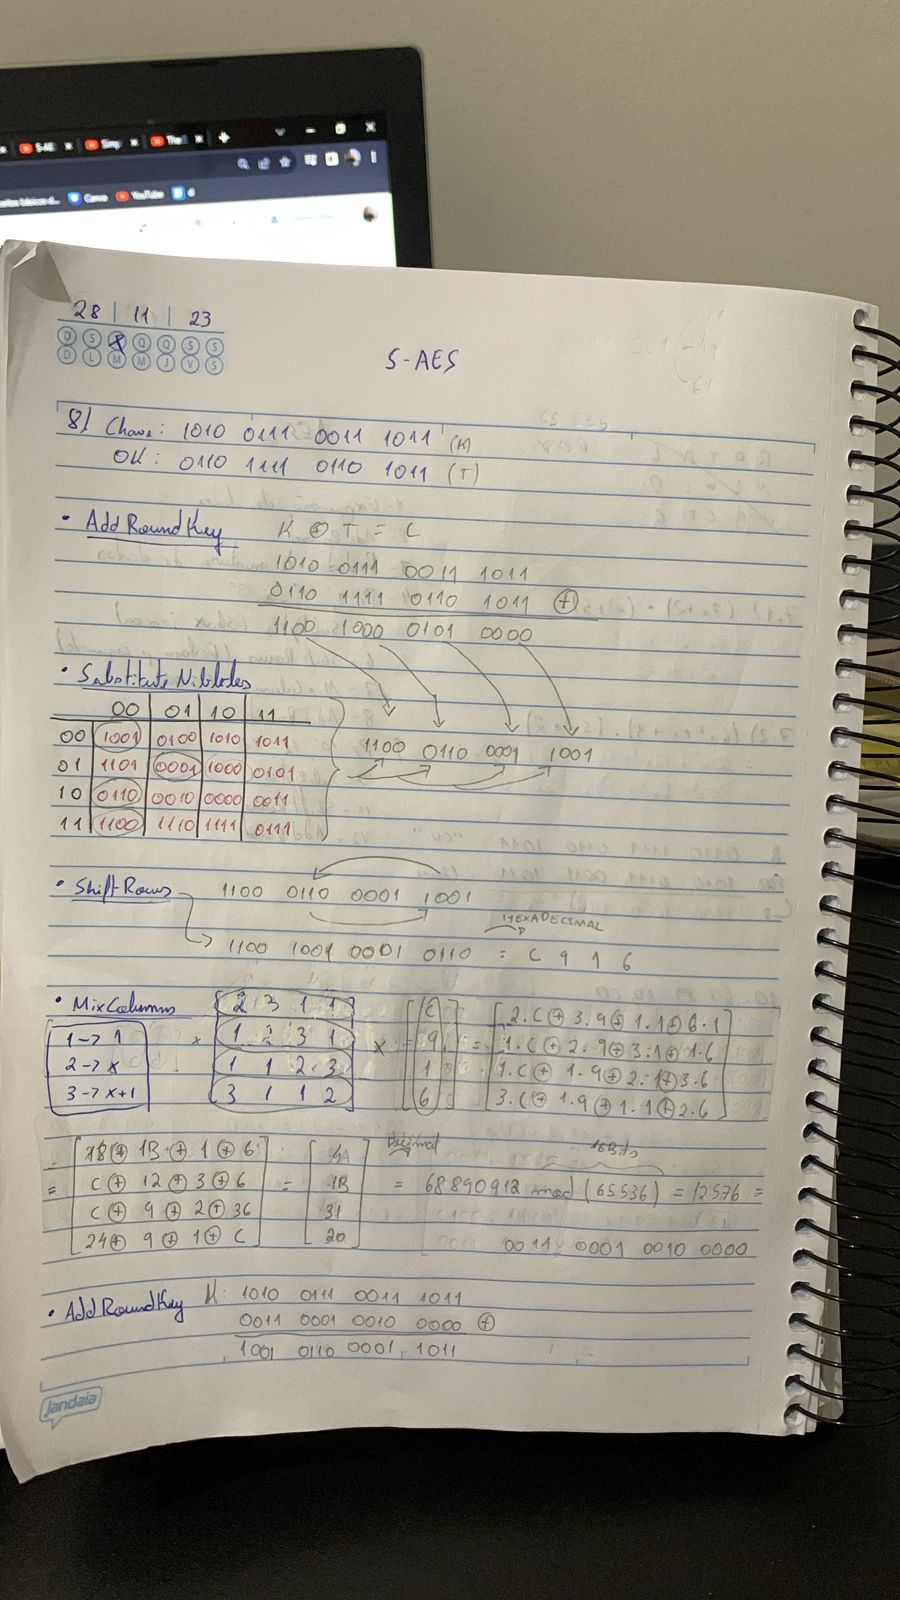 S-AE
Simp
The
Canva
YouTube
di
28 | 11 | 23
D S T Q Q S S
D L M M J V S
S-AES
8) Chave: 1010 0111 0011 1011 (K)
OK: 0110 1111 0110 1011 (T)
• AddRoundKey K ⊕ T = C
1010 0111 0011 1011
0110 1111 0110 1011 ⊕
1100 1000 0101 0000
• Substitute Nibbles
00 | 01 | 10 | 11
00 1001 0100 1010 1011
01 1101 0001 1000 0101
10 0110 0010 0000 0011
11 1100 1110 1111 0111
1100 0110 0001 1001
• Shift Rows 1100 0110 0001 1001
HEXADECIMAL
1100 1001 0001 0110 = C 9 1 6
• MixColumns
1 -> 1
2 -> x
3 -> x+1
×
2 3 1 1
1 2 3 1
1 1 2 3
3 1 1 2
×
C
9
1
6
=
2.C ⊕ 3.9 ⊕ 1.1 ⊕ 6.1
1.C ⊕ 2.9 ⊕ 3.1 ⊕ 1.6
1.C ⊕ 1.9 ⊕ 2.1 ⊕ 3.6
3.C ⊕ 1.9 ⊕ 1.1 ⊕ 2.6
=
18 ⊕ 1B ⊕ 1 ⊕ 6
C ⊕ 12 ⊕ 3 ⊕ 6
C ⊕ 9 ⊕ 2 ⊕ 36
24 ⊕ 9 ⊕ 1 ⊕ C
=
4A
1B
31
20
Decimal
16Bits
= 68890912 mod (65536) = 12576 =
0011 0001 0010 0000
• AddRoundKey K: 1010 0111 0011 1011
0011 0001 0010 0000 ⊕
1001 0110 0001 1011
Jandaia